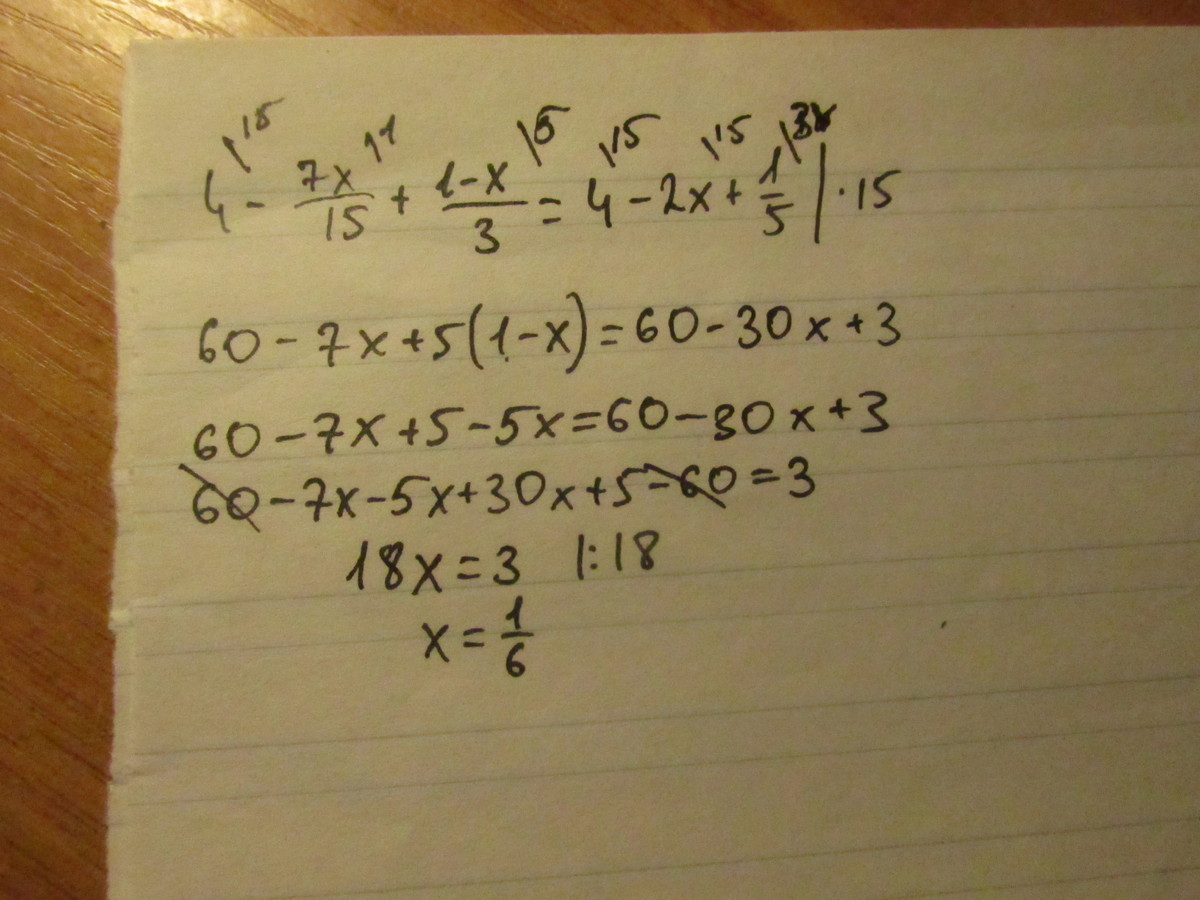 4\15 - 7x/15\1 + 1-x/3\5 = 4\15 - 2x\15 + 1/5\3 | · 15
60 - 7x + 5(1-x) = 60 - 30x + 3
60 - 7x + 5 - 5x = 60 - 30x + 3
60 - 7x - 5x + 30x + 5 - 60 = 3
18x = 3 |:18
x = 1/6